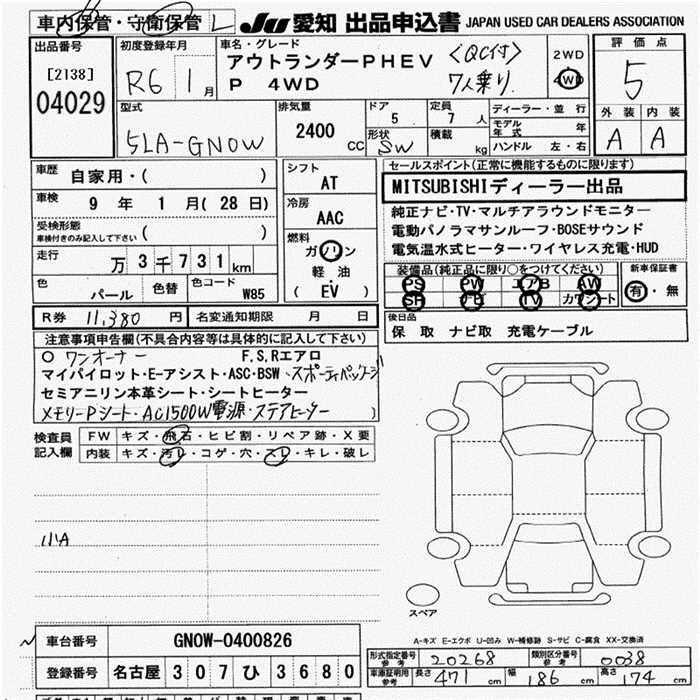 車内保管・守衛保管 L
JU 愛知 出品申込書 JAPAN USED CAR DEALERS ASSOCIATION
出品番号
[2138]
04029
初度登録年月
R6 1月
車名・グレード
アウトランダーPHEV <QC付>
P 4WD 7人乗り
2WD
4WD
評価点
5
外装 内装
A A
型式
5LA-GN0W
排気量
2400 CC
ドア
5
形状
SW
定員
7 人
積載
kg
ディーラー・並行
モデル年式 年
ハンドル 左・右
車歴
自家用・( )
車検
9 年 1 月( 28 日)
受検形態
車検付きのみ記入して下さい ( )
走行
万 3 千 7 3 1 km
色
パール
色替
色コード
W85
シフト
AT
冷房
AAC
燃料
ガソリン
軽油
( EV )
セールスポイント(正常に機能するものに限ります)
MITSUBISHIディーラー出品
純正ナビ・TV・マルチアラウンドモニター
電動パノラマサンルーフ・BOSEサウンド
電気温水式ヒーター・ワイヤレス充電・HUD
装備品(純正品に限り○をつけてください)
PS PW エアB AW
SR ナビ TV カワシート
新車保証書
有・無
R券 11,380 円 名変通知期限 月 日
後日品
保 取 ナビ取 充電ケーブル
注意事項申告欄(不具合内容等は具体的に記入して下さい)
○ ワンオーナー F,S,Rエアロ
マイパイロット・E-アシスト・ASC・BSW・スポーティパッケージ
セミアニリン本革シート・シートヒーター
メモリーPシート・AC1500W電源・ステアヒーター )
検査員記入欄
FW キズ・飛石・ヒビ割・リペア跡・X要
内装 キズ・汚レ・コゲ・穴・スレ・キレ・破レ
小A
スペア
A-キズ E-エクボ U-凹み W-補修跡 S-サビ C-腐食 XX-交換済
車台番号 GN0W-0400826
登録番号 名古屋 3 0 7 ひ 3 6 8 0
形式指定番号 参考 20268 類別区分番号 参考 0038
車庫証明用 参考 長さ 471 cm 幅 186 cm 高さ 174 cm